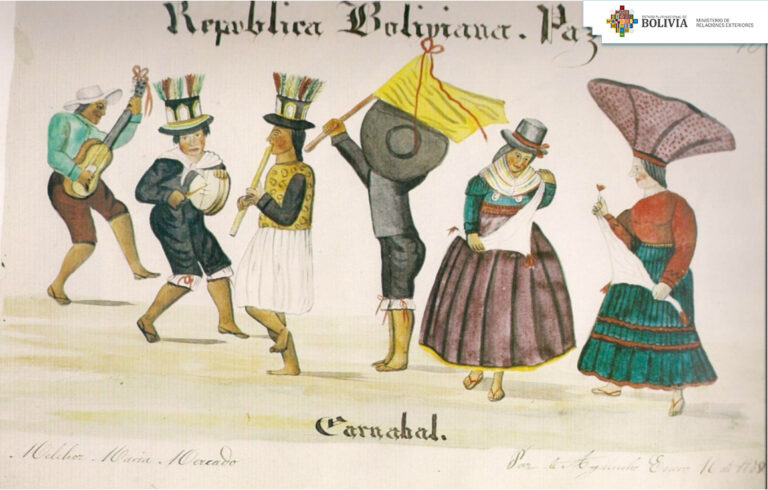 Republica Boliviana. Paz
ESTADO PLURINACIONAL DE
BOLIVIA
MINISTERIO DE
RELACIONES EXTERIORES
Carnabal.
Melchor Maria Mercado
Paz de Ayacucho Enero 16 de